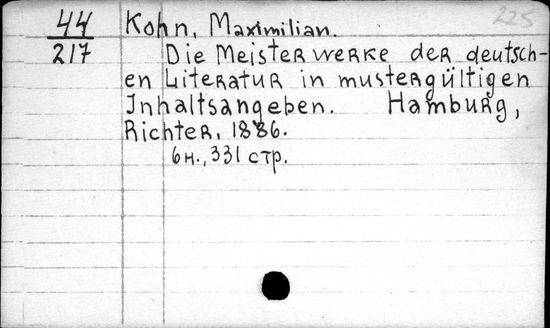 44
217
225
Kohn, Maximilian.
Die Meisterwerke der deutsch-
en Literatur in mustergültigen
Inhaltsangeben. Hamburg,
Richter, 1886.
6н., 331 стр.